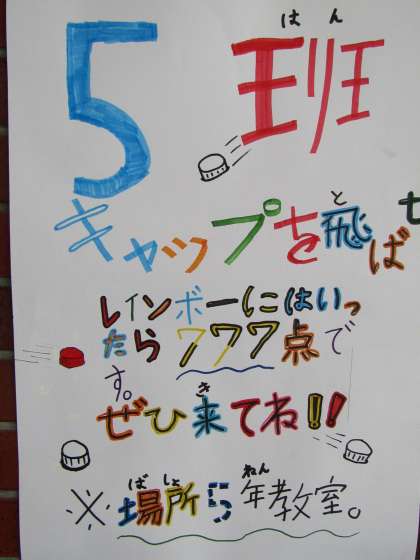 はん
5 班
と
キャップを飛ばせ
レインボーにはいっ
たら 777点で
す。
き
ぜひ来てね!!
ばしょ ねん
※場所5年教室。